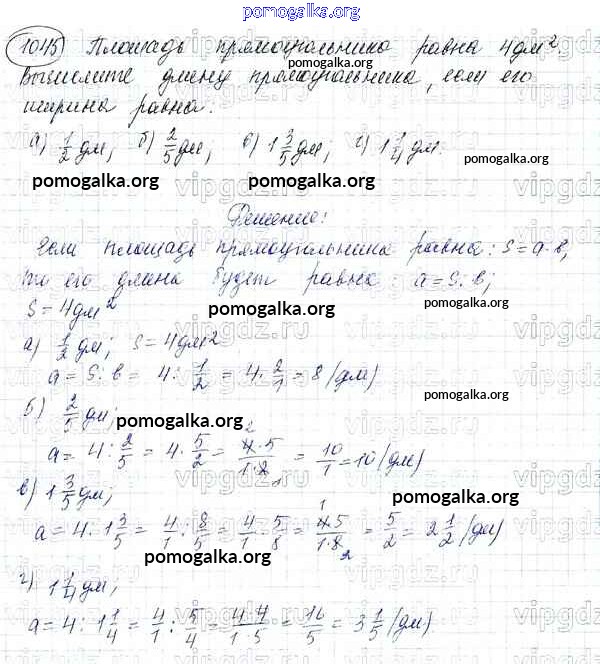 pomogalka.org
1045) Площадь прямоугольника равна 4 дм².
Вычислите длину прямоугольника, если его
ширина равна:
а) 1/2 дм; б) 2/5 дм; в) 1 3/5 дм; г) 1 1/4 дм.
pomogalka.org
pomogalka.org pomogalka.org
Решение:
Если площадь прямоугольника равна: S = a · в,
то его длина будет равна: a = S : в;
S = 4 дм²
pomogalka.org
pomogalka.org
а) 1/2 дм; S = 4 дм²
a = S : в = 4 : 1/2 = 4 · 2/1 = 8 (дм)
pomogalka.org
б) 2/5 дм;
pomogalka.org
a = 4 : 2/5 = 4 · 5/2 = 4·5/1·2 = 10/1 = 10 (дм)
в) 1 3/5 дм;
pomogalka.org
a = 4 : 1 3/5 = 4/1 : 8/5 = 4/1 · 5/8 = 4·5/1·8 = 5/2 = 2 1/2 (дм)
pomogalka.org
г) 1 1/4 дм;
a = 4 : 1 1/4 = 4/1 : 5/4 = 4·4/1·5 = 16/5 = 3 1/5 (дм).